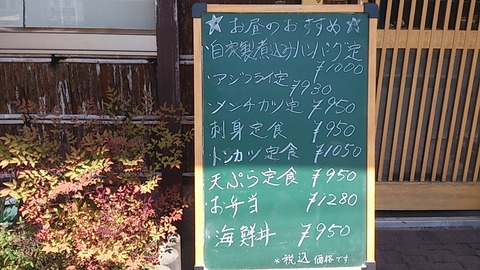 ☆お昼のおすすめ☆
・自家製煮込みハンバーグ定
¥1000
・アジフライ定
¥930
・メンチカツ定 ¥950
・刺身定食 ¥950
・トンカツ定食 ¥1050
・天ぷら定食 ¥950
・お弁当 ¥1280
・海鮮丼 ¥950
※税込価格です